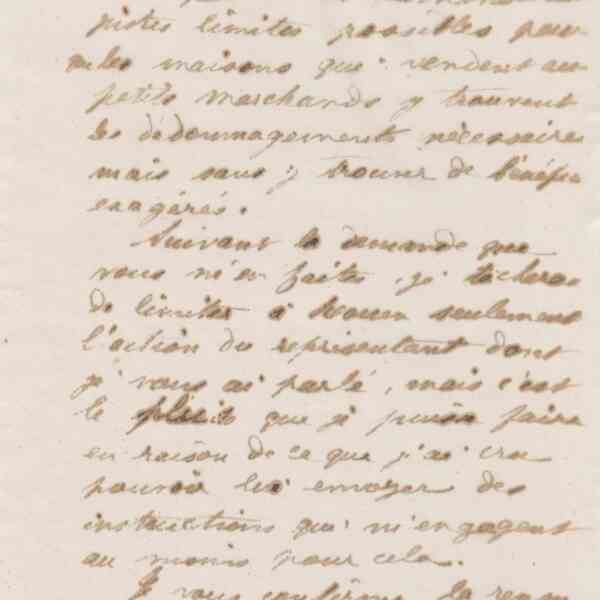 justes limites possibles pour
que les maisons qui vendent aux
petits marchands y trouvent
les dédommagements nécessaires
mais sans y trouver de bénéfices
exagérés.
Suivant la demande que
vous m'en faites, je tâcherai
de limiter à Rouen seulement
l'action du représentant dont
je vous ai parlé, mais c'est
le plus que je puisse faire
en raison de ce que j'ai cru
pouvoir lui envoyer des
instructions qui m'engagent
au moins pour cela.
Je vous confirme la